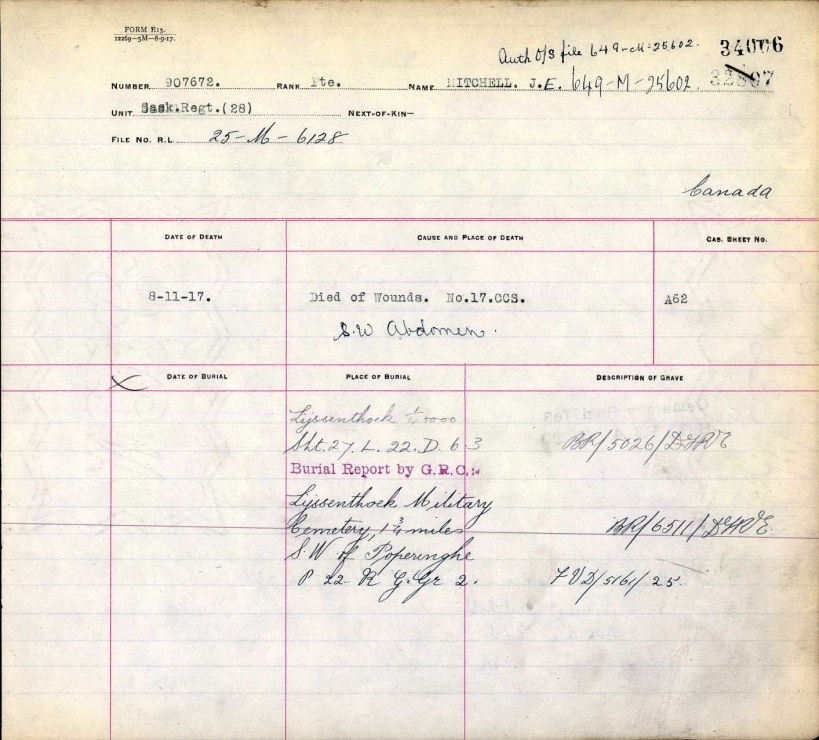 FORM E13.
12269—5M—8-9-17.
Auth O/S file 649-M-25602. 34006
NUMBER 907672. RANK Pte. NAME MITCHELL. J.E. 649-M-25602.
UNIT Sask.Regt.(28) NEXT-OF-KIN—
FILE NO. R.L. 25-M-6128
Canada
DATE OF DEATH CAUSE AND PLACE OF DEATH CAS. SHEET NO.
8-11-17. Died of Wounds. No.17.CCS. A62
S.W Abdomen.
DATE OF BURIAL PLACE OF BURIAL DESCRIPTION OF GRAVE
Lijssenthoek
Sht. 27. L. 22. D. 6.3 BR/5026/DGRE
Burial Report by G.R.C.:-
Lijssenthoek Military
Cemetery, 1¾ miles BR/6511/DGRE
S.W of Poperinghe
P 22 R G. Gr 2. FVD/5161/25.